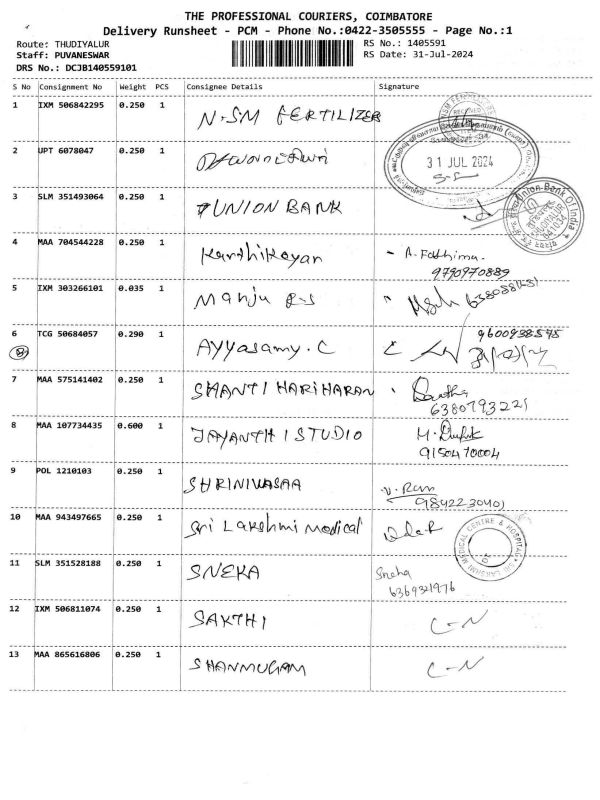 THE PROFESSIONAL COURIERS, COIMBATORE
Delivery Runsheet - PCM - Phone No.:0422-3505555 - Page No.:1
Route: THUDIYALUR
RS No.: 1405591
Staff: PUVANESWAR
RS Date: 31-Jul-2024
DRS No.: DCJB140559101
S No Consignment No Weight PCS Consignee Details Signature
1 IXM 506842295 0.250 1 N.SM FERTILIZER
2 UPT 6078047 0.250 1
31 JUL 2024
3 SLM 351493064 0.250 1 UNION BANK
Union Bank Of India
4 MAA 704544228 0.250 1 Karthikayan A. Fathima.
9790970889
5 IXM 303266101 0.035 1 Manju R-S
6 TCG 50684057 0.290 1 AYYasamy. C 9600938545
7 MAA 575141402 0.250 1 SHANTI HARIHARAN
6380793221
8 MAA 107734435 0.600 1 JAYANTHI STUDIO
9150470004
9 POL 1210103 0.250 1 SHRINIVASAA V. Ram
9842230401
10 MAA 943497665 0.250 1 Sri Lakshmi Medical
SRI LAKSHMI MEDICAL CENTRE & HOSPITAL
11 SLM 351528188 0.250 1 SNEKA Sneha
6369321976
12 IXM 506811074 0.250 1 SAKTHI C-N
13 MAA 865616806 0.250 1 SHANMUGAM C-N